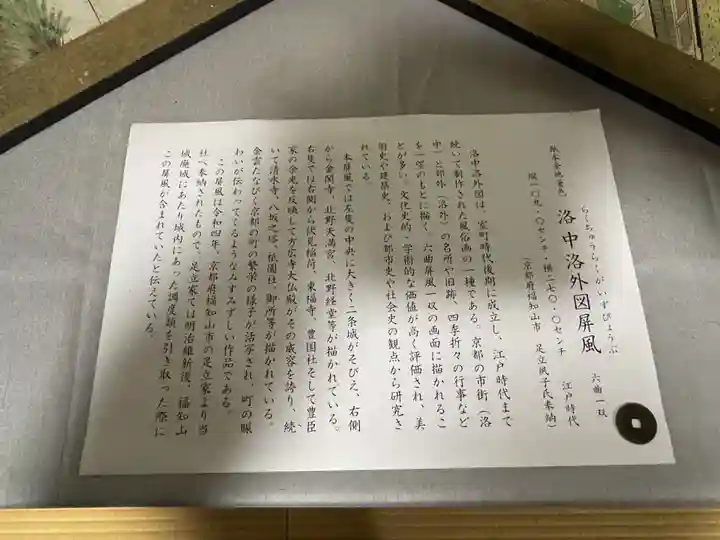 らくちゅうらくがいずびょうぶ
洛中洛外図屏風　六曲一双
紙本金地着色　江戸時代
縦一〇九・〇センチ・横二七〇・〇センチ
（京都府福知山市　足立夙子氏奉納）
洛中洛外図は、室町時代後期に成立し、江戸時代まで
続いて制作された風俗画の一種である。京都の市街（洛
中）と郊外（洛外）の名所や旧跡、四季折々の行事など
を一望のもとに描く。六曲屏風一双の画面に描かれるこ
とが多い。文化史的・学術的な価値が高く評価され、美
術史や建築史、および都市史や社会史の観点から研究さ
れている。
本屏風では左隻の中央に大きく二条城がそびえ、右側
から金閣寺、北野天満宮、北野経堂等が描かれている。
右隻では右側から伏見稲荷、東福寺、豊国社そして豊臣
家の余光を反映して方広寺大仏殿がその威容を誇り、続
いて清水寺、八坂之塔、祇園社、御所等が描かれている。
金雲たなびく京都の町の繁栄の様子が活写され、町の賑
わいが伝わってくるようなみずみずしい作品である。
この屏風は令和四年、京都府福知山市の足立家より当
社へ奉納されたもので、足立家では明治維新後、福知山
城廃城にあたり城内にあった調度類を引き取った際に
この屏風が含まれていたと伝えている。